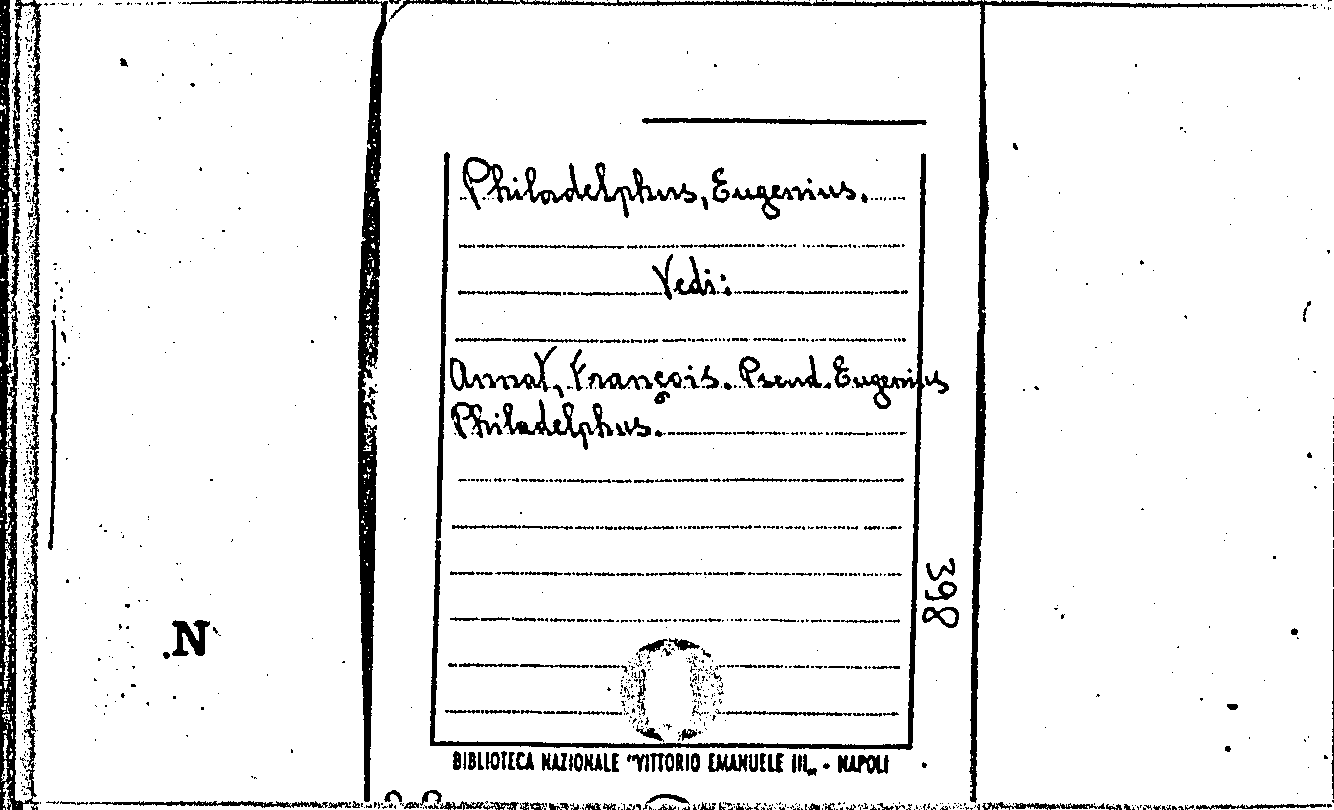 Philadelphus, Eugenius.
Vedi:
Annat, François. Pseud. Eugenius
Philadelphus.
398
.N
BIBLIOTECA NAZIONALE "VITTORIO EMANUELE III„ - NAPOLI